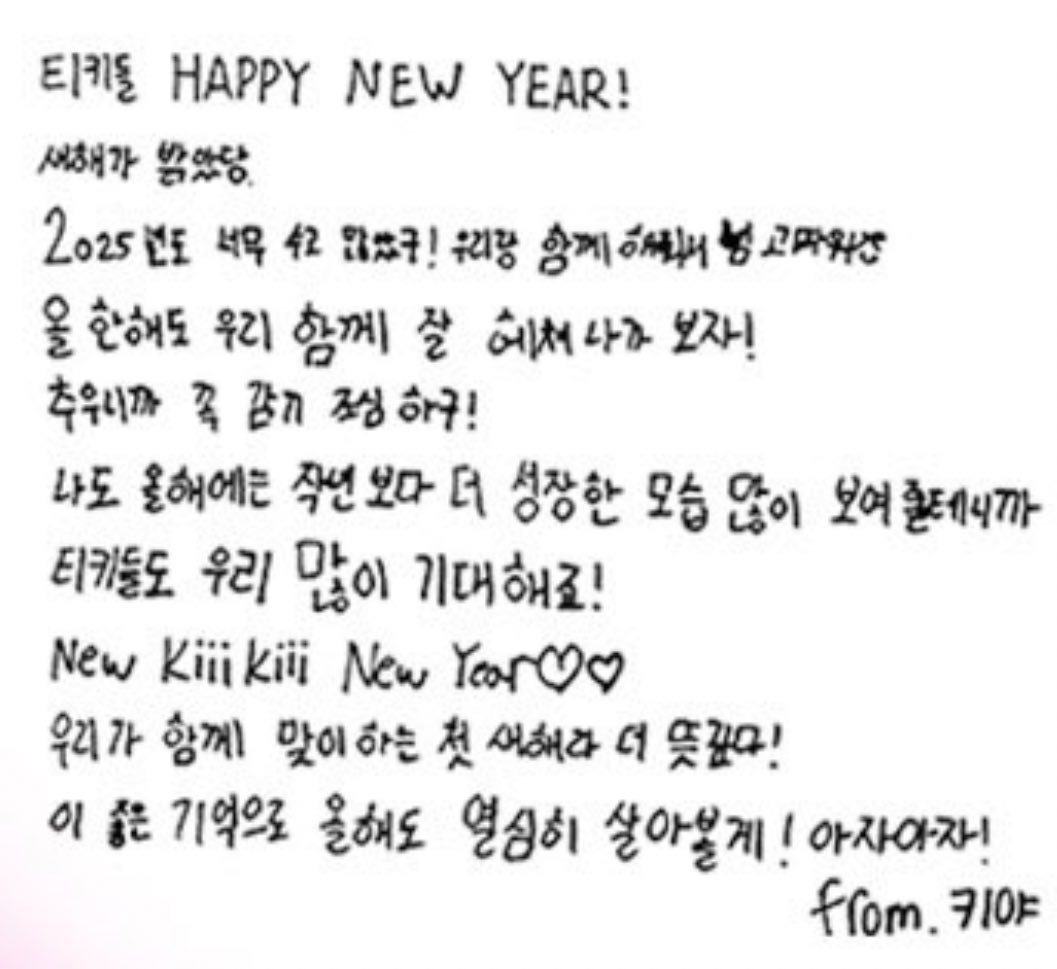 티키들 HAPPY NEW YEAR!
새해가 밝았당.
2025년도 너무 수고 많았구! 우리랑 함께 해줘서 넘 고마워썽
올 한해도 우리 함께 잘 헤쳐나가 보자!
추우니까 꼭 감기 조심하구!
나도 올해에는 작년보다 더 성장한 모습 많이 보여줄테니까
티키들도 우리 많이 기대해죠!
New Kiiikiii New Year♡♡
우리가 함께 맞이하는 첫 새해라 더 뜻깊다!
이 좋은 기억으로 올해도 열심히 살아볼게! 아자아자!
from. 키야